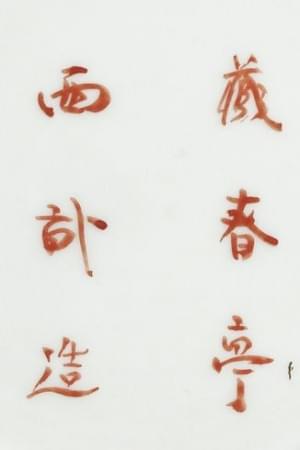 藏春亭
西部造